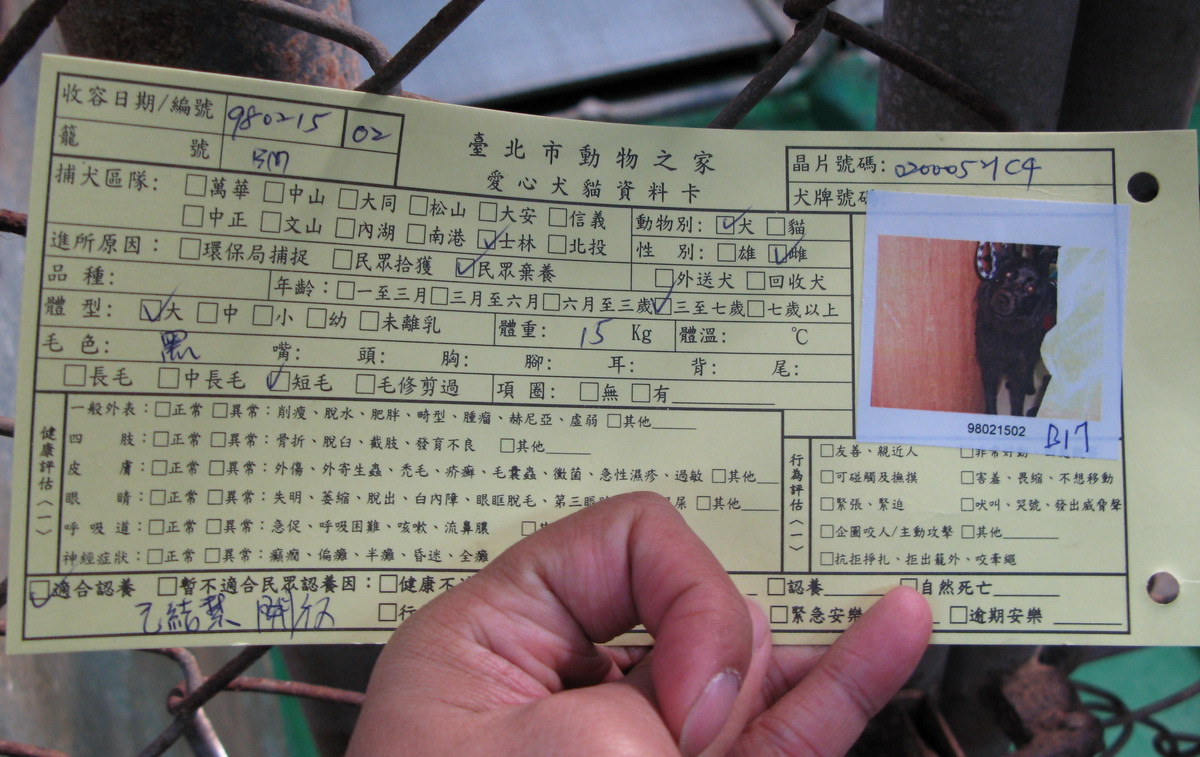 收容日期/編號 980215 02
籠 號 B17
臺北市動物之家
愛心犬貓資料卡
晶片號碼: 020005
犬牌號碼
捕犬區隊: □萬華 □中山 □大同 □松山 □大安 □信義
□中正 □文山 □內湖 □南港 ☑士林 □北投
動物別: ☑犬 □貓
進所原因: □環保局捕捉 □民眾拾獲 ☑民眾棄養 □外送犬 □回收犬
性 別: □雄 ☑雌
品 種: 年齡: □一至三月 □三月至六月 □六月至三歲 ☑三至七歲 □七歲以上
體 型: ☑大 □中 □小 □幼 □未離乳 體重: 15 Kg 體溫: ℃
毛 色: 黑 嘴: 頭: 胸: 腳: 耳: 背: 尾:
□長毛 □中長毛 ☑短毛 □毛修剪過 項 圈: □無 □有
98021502 B17
健康評估(一)
一般外表: □正常 □異常: 削瘦、脫水、肥胖、畸型、腫瘤、赫尼亞、虛弱 □其他
四 肢: □正常 □異常: 骨折、脫臼、截肢、發育不良 □其他
皮 膚: □正常 □異常: 外傷、外寄生蟲、禿毛、疥癬、毛囊蟲、黴菌、急性濕疹、過敏 □其他
眼 睛: □正常 □異常: 失明、萎縮、脫出、白內障、眼眶脫毛、第三眼 屎 □其他
呼 吸 道: □正常 □異常: 急促、呼吸困難、咳嗽、流鼻膿
神經症狀: □正常 □異常: 癲癇、偏癱、半癱、昏迷、全癱
行為評估(一)
□友善、親近人
□可碰觸及撫摸 □害羞、畏縮、不想移動
□緊張、緊迫 □吠叫、哭號、發出威脅聲
□企圖咬人/主動攻擊 □其他
□抗拒掙扎、拒出籠外、咬牽繩
☑適合認養 □暫不適合民眾認養因: □健康不 □認養 □自然死亡
已結紮 □行 □緊急安樂 □逾期安樂